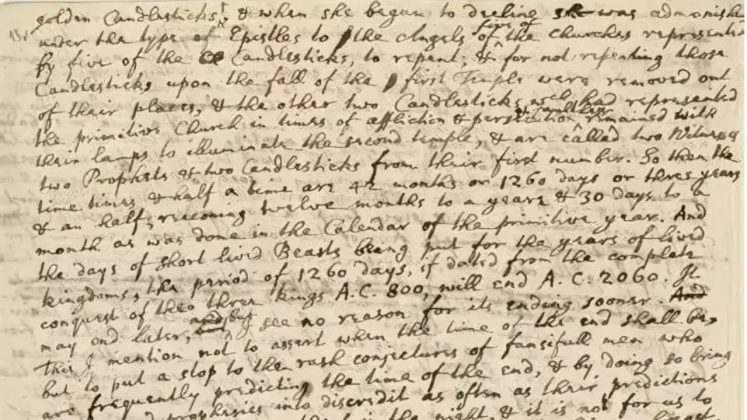 golden Candlesticks, & when she began to decline she was admonished
under the type of Epistles to the Angels of five of the Churches represented
by five of the Candlesticks, to repent; & for not repenting those
Candlesticks upon the fall of the first Temple were removed out
of their places, & the other two Candlesticks wch had represented
the primitive Church in times of affliction & persecution remained with
their lamps to illuminate the second temple, & are called two Witnesses
two Prophets & two Candlesticks from their first number. So then the
time times & half a time are 42 months or 1260 days or three years
& an half, reconing twelve months to a yeare & 30 days to a
month as was done in the Calendar of the primitive year. And
the days of short lived Beasts being put for the years of lived
kingdoms, the period of 1260 days, if dated from the complete
conquest of the three kings A.C. 800, will end A.C. 2060. It
may end later, but I see no reason for its ending sooner. And
This I mention not to assert when the time of the end shall be,
but to put a stop to the rash conjectures of fancifull men who
are frequently predicting the time of the end, & by doing so bring
the prophesies into discredit as often as their predictions
in the night, & it is not for us to